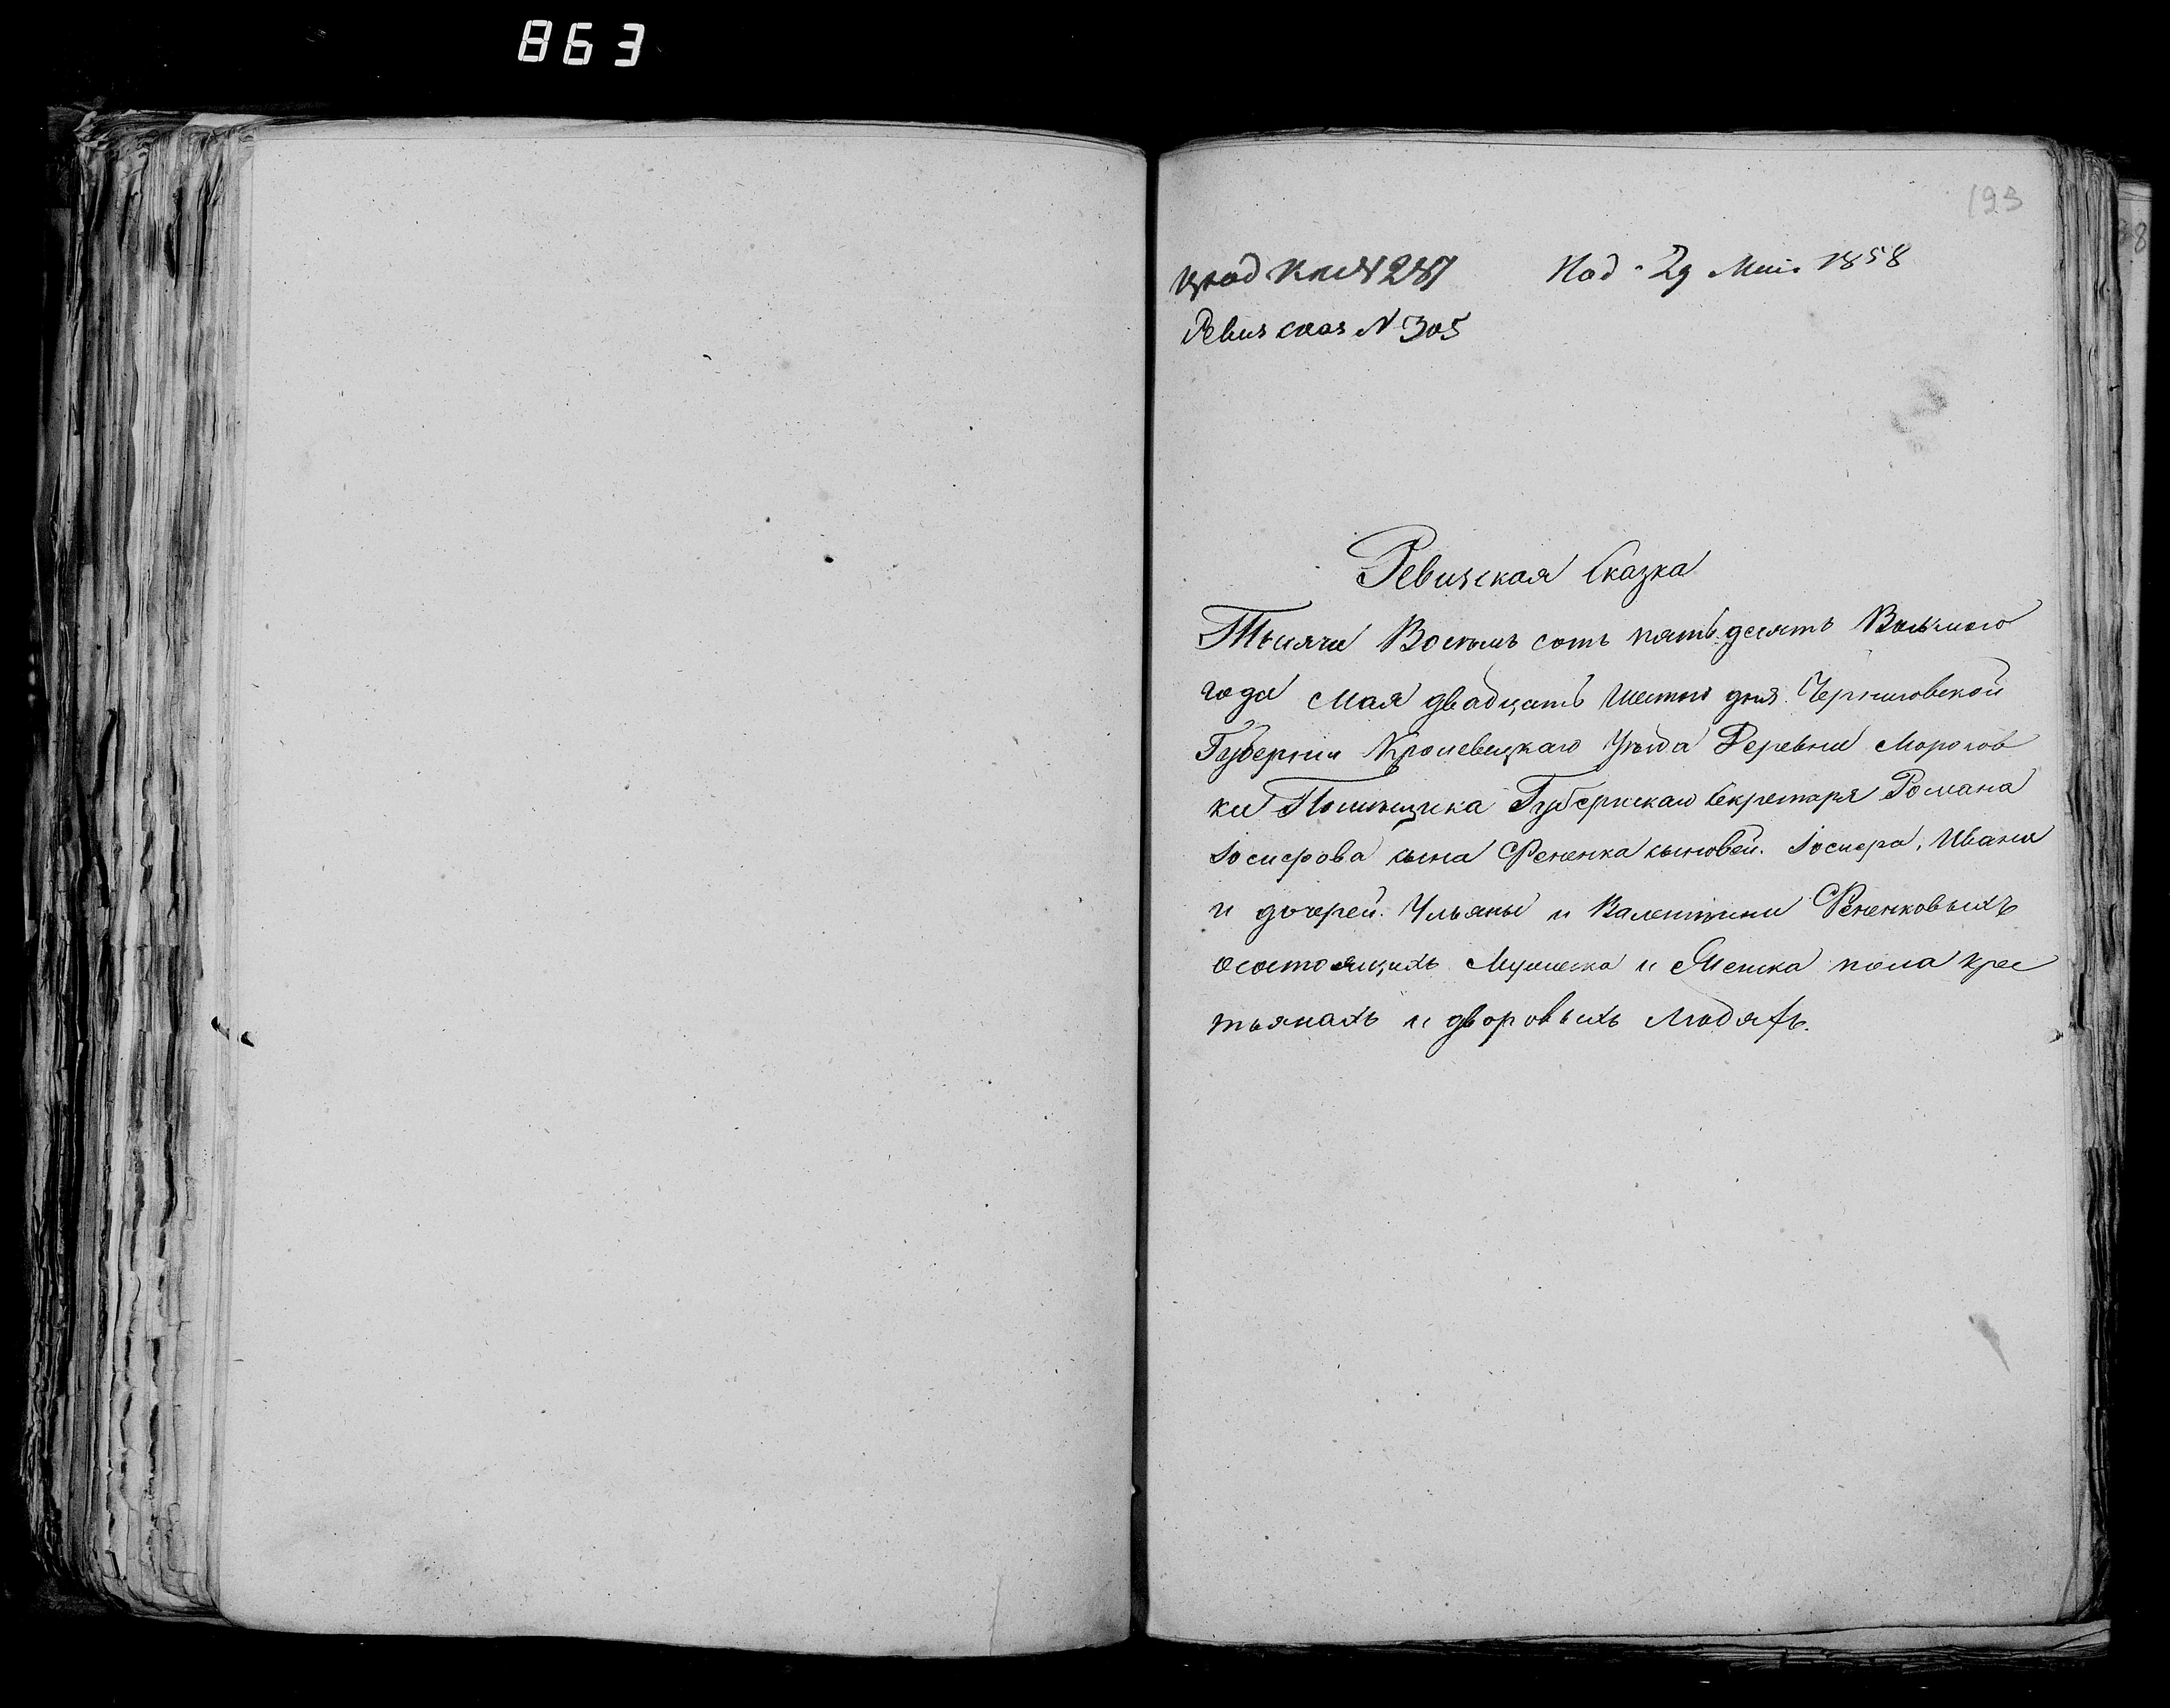 863
193
Под. 29 Мая 1858
Ревиз сказ N 305
Ревизская Сказка
Тысячи Восемь сотъ пять десятъ Восьмого
года Мая двадцать шестого дня. Черниговской
Губернии Кролевецкаго Уезда Деревни Морозов
ки Помещика Губернскаго Секретаря Романа
Иосифова сына Фененка сыновей. Иосифа, Ивана
и дочерей. Ульяны и Валентини Фененковыхъ
о состоящихъ Мужеска и Женска пола крес
тьянахъ и дворовыхъ людяхъ.